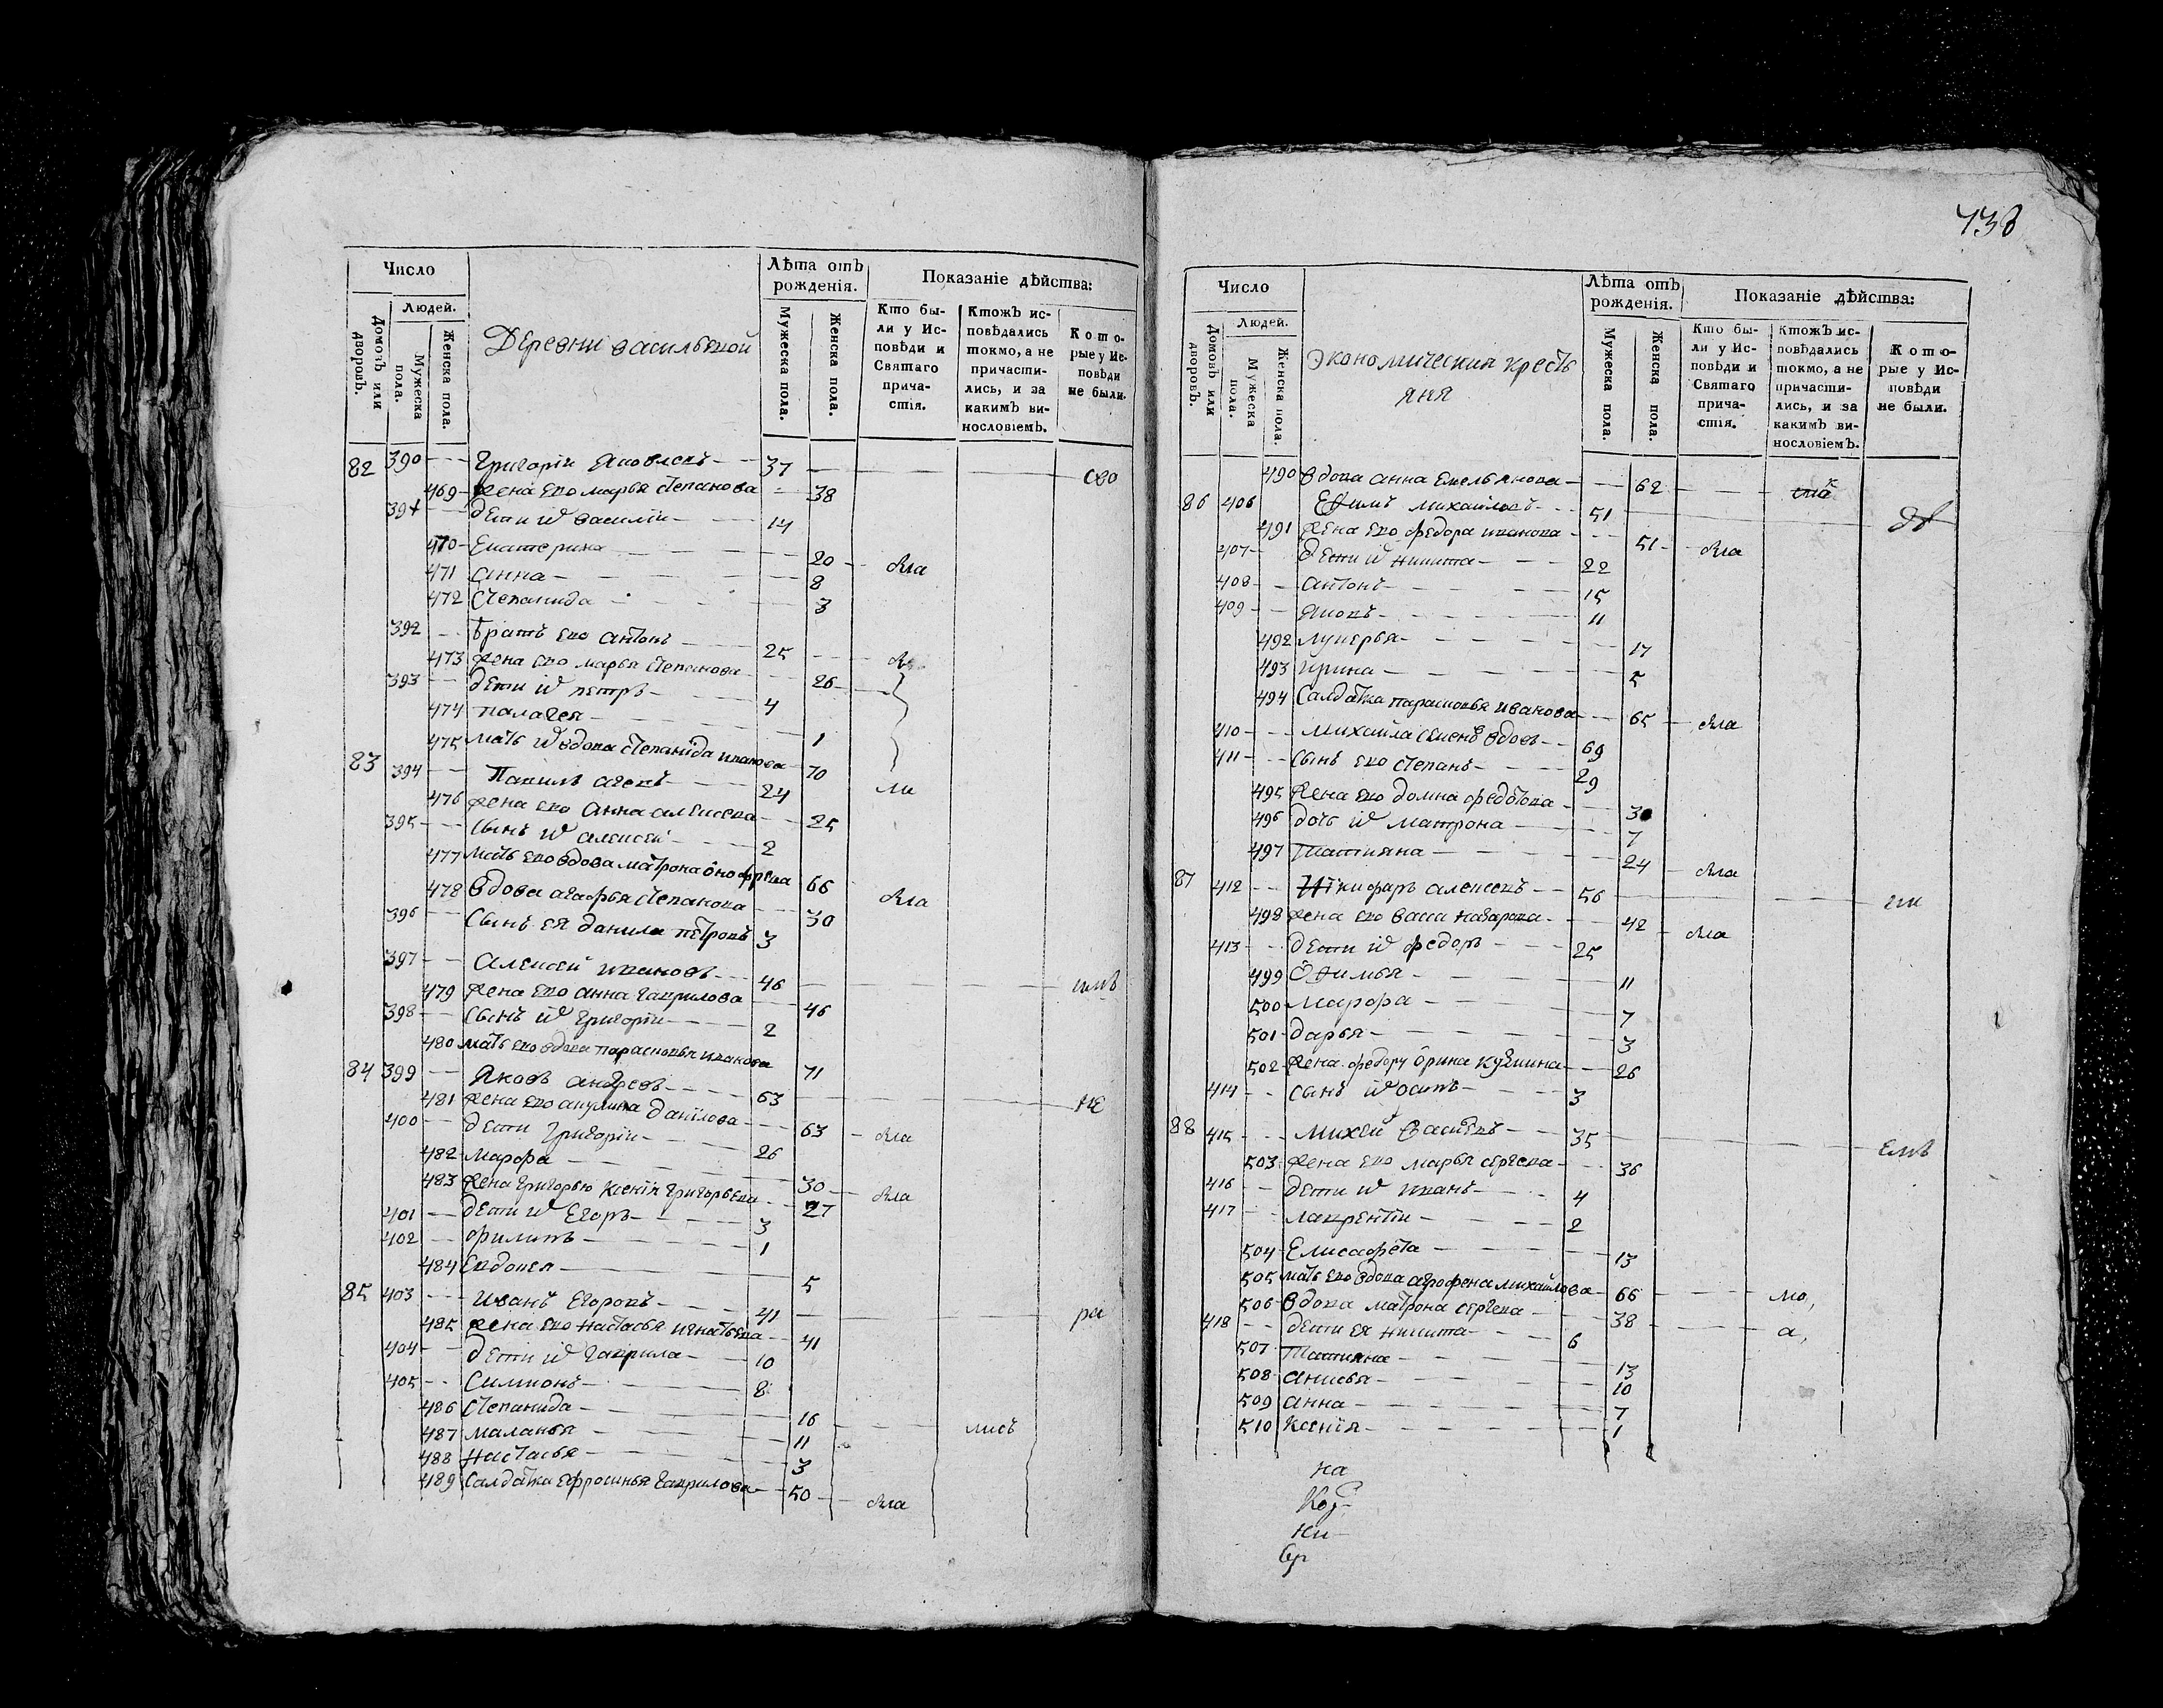 Число
Лѣта отъ рожденія.
Показаніе дѣйства:
Людей.
Домовъ или дворовъ.
Мужеска пола.
Женска пола.
Деревни васильевой
Мужеска пола.
Женска пола.
Кто были у Исповѣди и Святаго причастія.
Ктожъ исповѣдались токмо, а не причастились, и за какимъ винословіемъ.
Которые у Исповѣди не были.
82 390 Григоріи Яковлевъ 37
469 жена ево марья степанова 38
391 дети ихъ василіи 14
470 Екатерина 20
471 анна 8
472 степанида 3
392 братъ ево антонъ 25
473 жена ево марья степанова 26
393 дети ихъ петръ 4
474 палагея 1
475 мать ихъ вдова степанида иванова 70
83 394 24 ли
476 жена ево анна алексеева 25
395 сынъ ихъ алексей 2
477 мать ево вдова матрона онофреева 66
478 вдова агафья степанова 30
396 сынъ ея данила петровъ 3
397 алексей ивановъ 46
479 жена ево анна гаврилова 46
398 сынъ ихъ григоріи 2
480 мать ево вдова парасковья иванова 71
84 399 Яковъ андреевъ 63 не
481 жена ево акулина данилова 63
400 дети григоріи 26
482 марфа 30
483 жена григорью ксенія григорьева 27
401 дети ихъ Егоръ 3
402 филипъ 1
484 Евдокея 5
85 403 иванъ Егоровъ 41
485 жена ево настасья игнатьева 41
404 дети ихъ гаврила 10
405 симионъ 8
486 степанида 16 лись
487 маланья 11
488 настасья 3
489 салдатка ефросинья гаврилова 50
438
Число
Лѣта отъ рожденія.
Показаніе дѣйства:
Людей.
Домовъ или дворовъ.
Мужеска пола.
Женска пола.
экономическия крестьяня
Мужеска пола.
Женска пола.
Кто были у Исповѣди и Святаго причастія.
Ктожъ исповѣдались токмо, а не причастились, и за какимъ винословіемъ.
Которые у Исповѣди не были.
490 вдова анна емельянова 62
86 406 Ефимъ михайловъ 51
491 жена ево федора иванова 51
407 дети ихъ никита 22
408 антонъ 15
409 яковъ 11
492 лукерья 17
493 ирина 5
494 салдатка парасковья иванова 65
410 михайла семенов вдовъ 69
411 сынъ ево степанъ 29
495 жена ево домна федотова 30
496 дочь ихъ матрона 7
497 татияна 24
87 412 никифаръ алексеевъ 56
498 жена ево васа назарова 42
413 дети ихъ федоръ 25
499 офимья 11
500 марфа 7
501 дарья 3
502 жена федору орина кузмина 26
414 сынъ ихъ осипъ 3
88 415 михей васильевъ 35
503 жена ево марья сергеева 36
416 дети ихъ иванъ 4
417 лаврентіи 2
504 Елисафета 13
505 мать ево вдова агрофена михайлова 66 мо,
506 вдова матрона сергеева 38 а,
418 дети ея никита 6
507 татияна 13
508 анисья 10
509 анна 7
510 ксенія 1
на